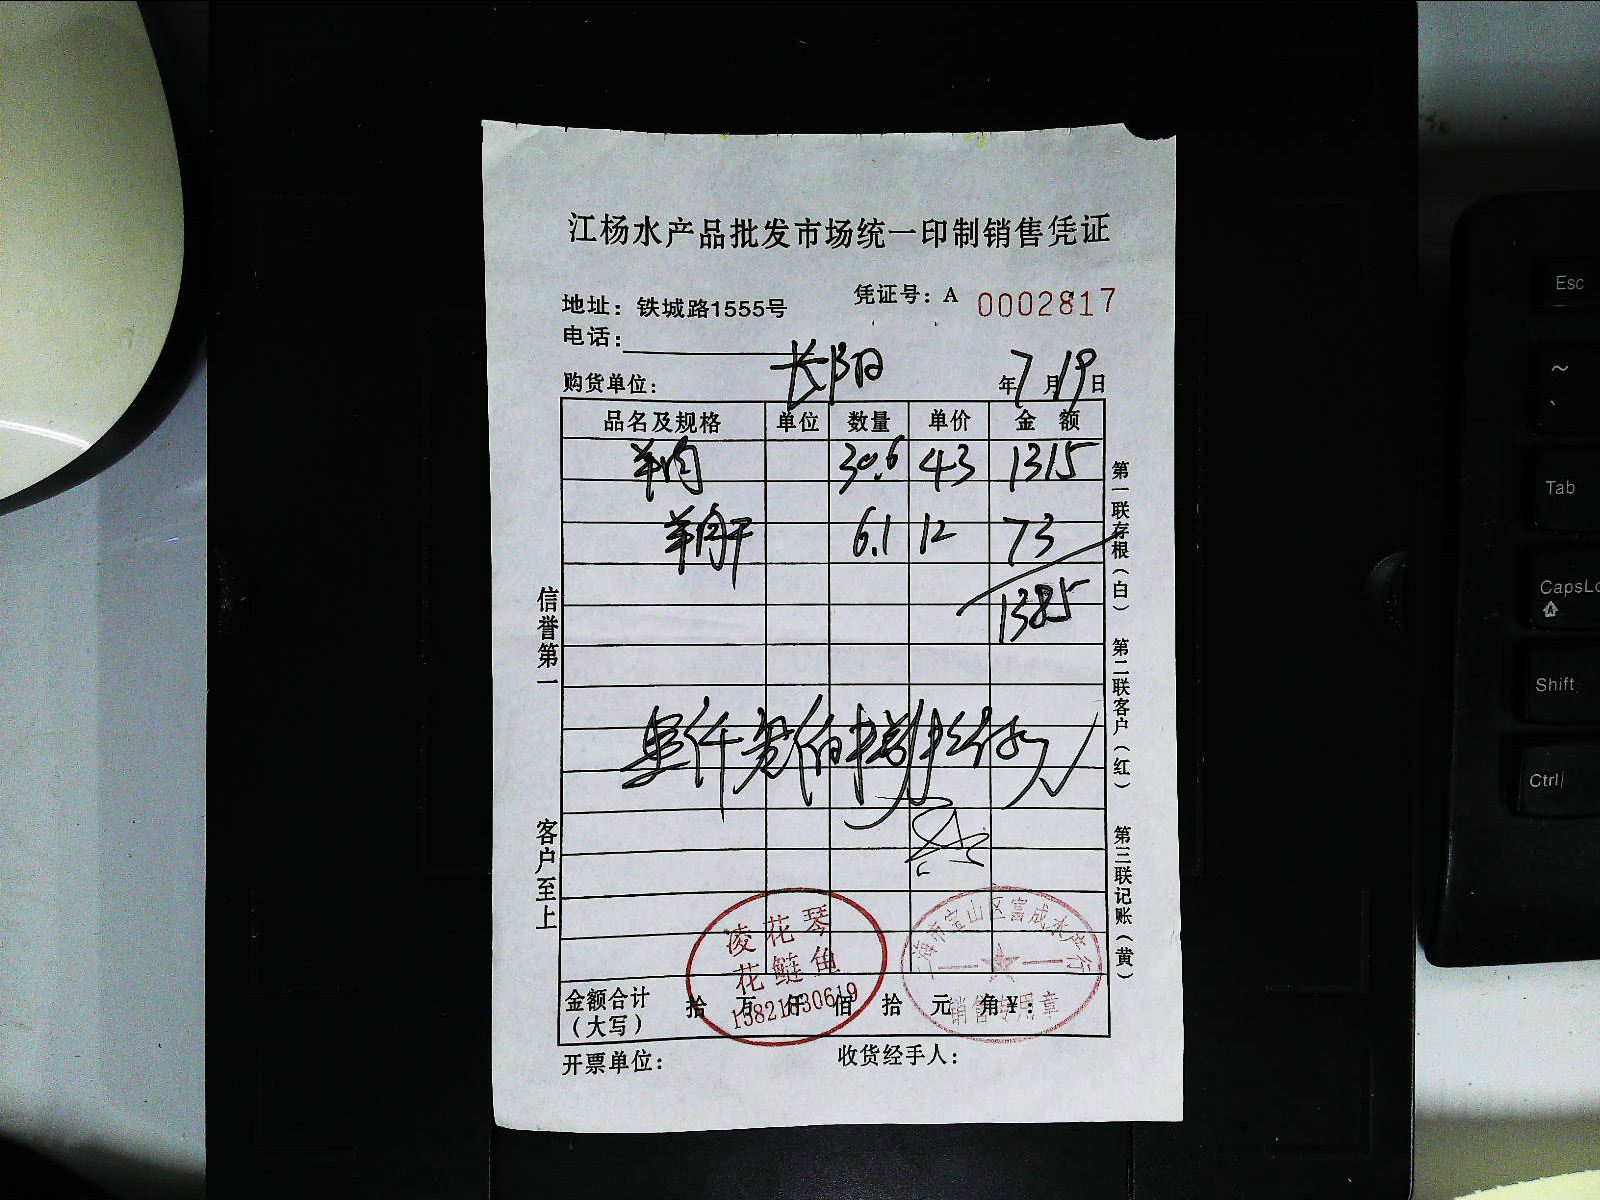 江杨水产品批发市场统一印制销售凭证
地址：铁城路1555号
凭证号：A 0002817
电话：
购货单位：长阳
年7月19日
品名及规格 单位 数量 单价 金额
羊肉 30.6 43 1315
6.1 12 73
1385
信誉第一
客户至上
第一联存根（白）
第二联客户（红）
第三联记账（黄）
凌花琴
花鲢鱼
15821830619
上海市宝山区富成水产行
销售专用章
金额合计（大写） 拾 万 仟 佰 拾 元 角 ¥：
开票单位：
收货经手人：
Esc
~
Tab
CapsLo
A
Shift
Ctrl